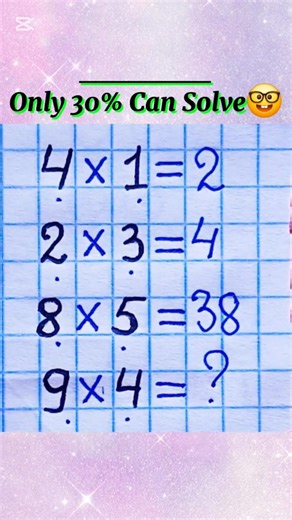 Only 30% Can Solve🤓
4×1=2
2×3=4
8×5=38
9×4=?